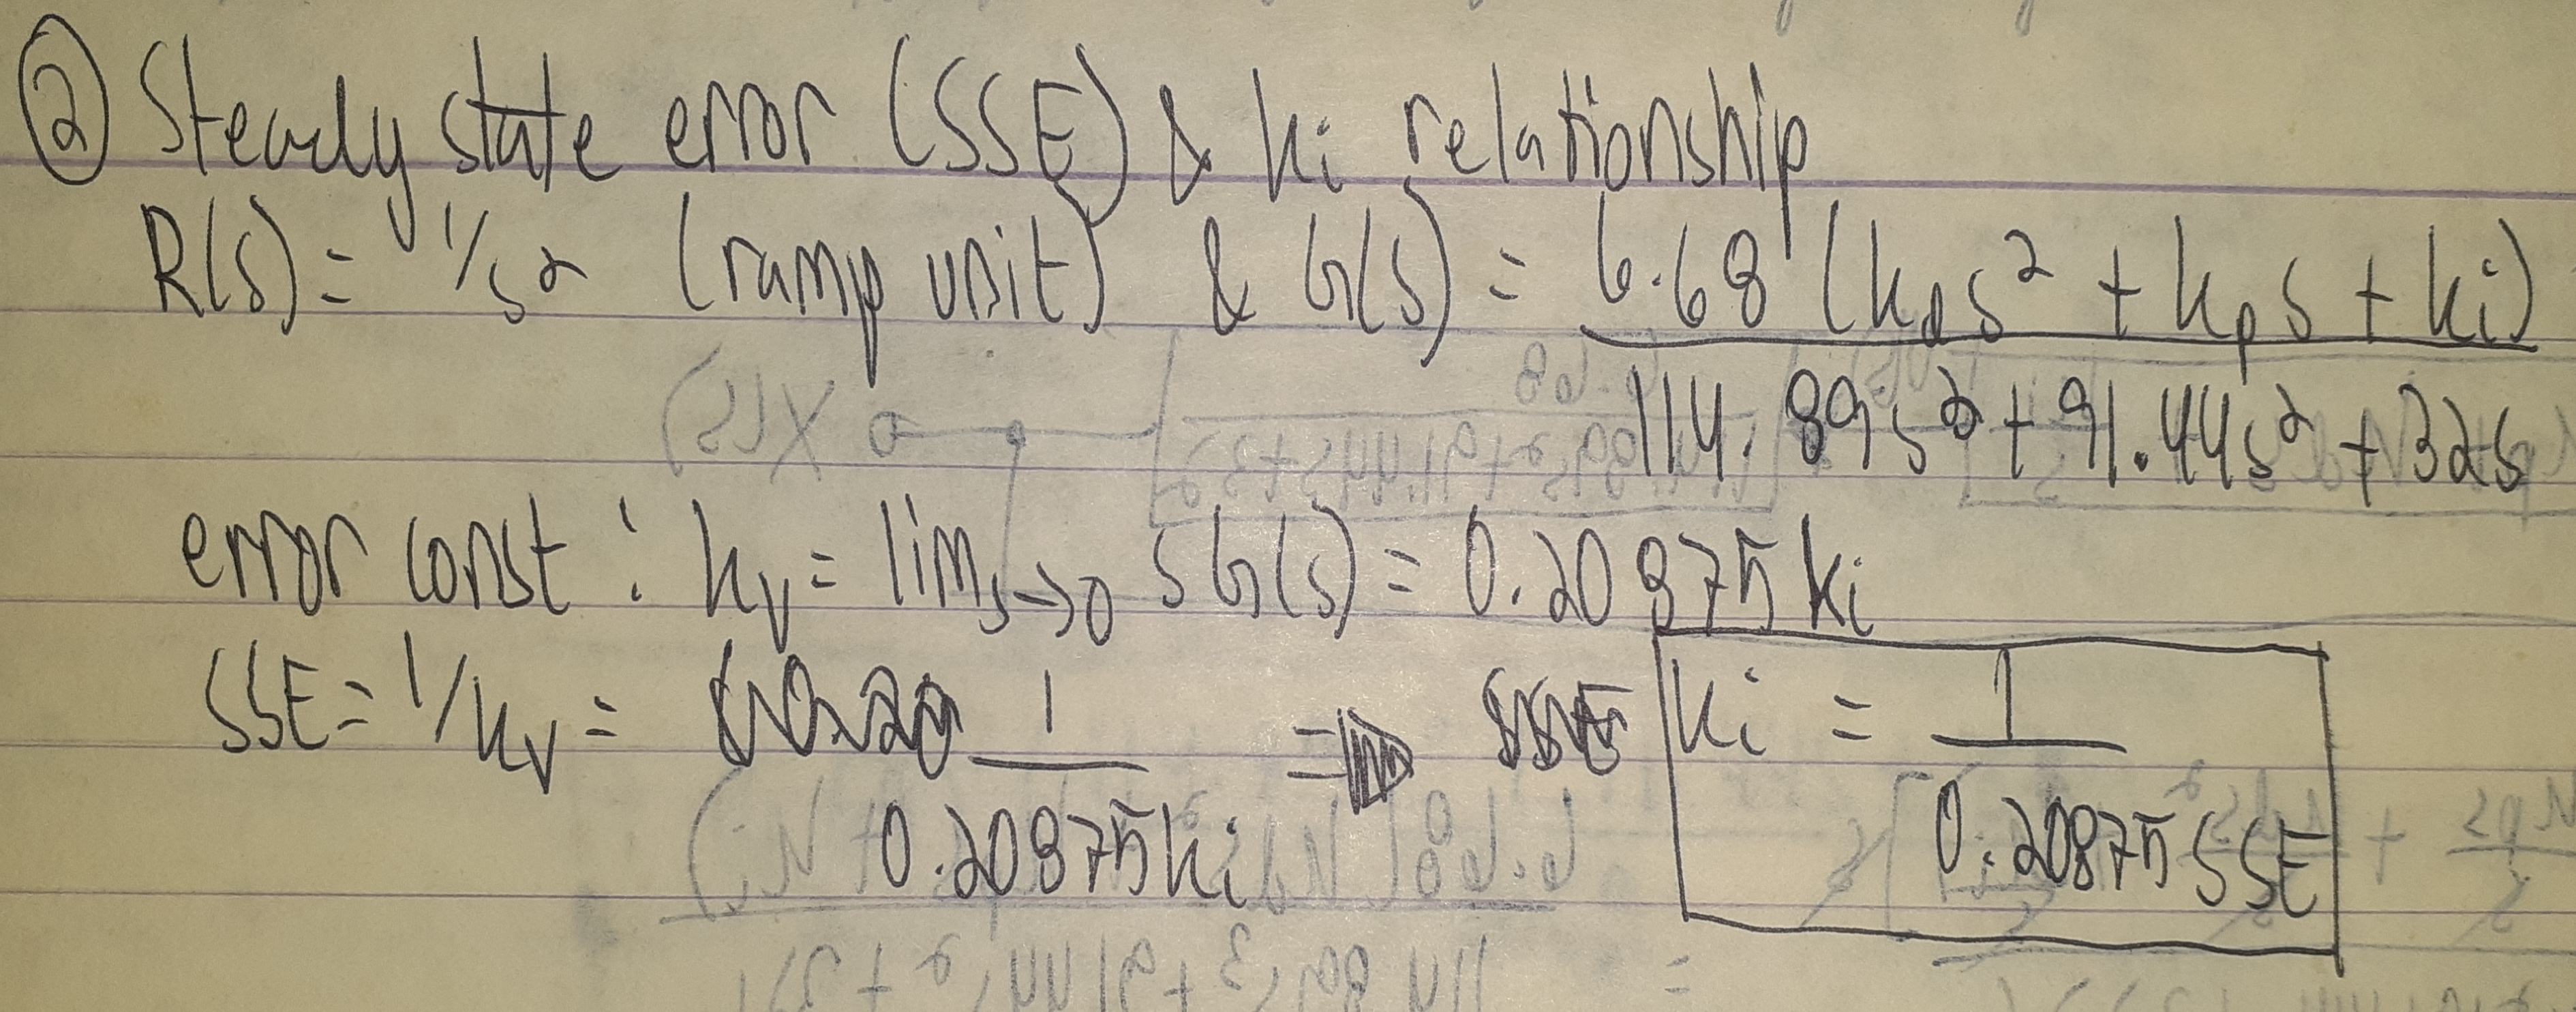 ② Steady state error (SSE) & ki relationship
R(s) = 1/s2 (ramp unit) & G(s) = 6.68 (kds² + kps + ki)
114.89s³ + 91.44s² + 32s
error const : kv = lims→0 sG(s) = 0.20875ki
SSE = 1/kv = 1 ⇒ ki = 1
0.20875ki 0.20875 SSE